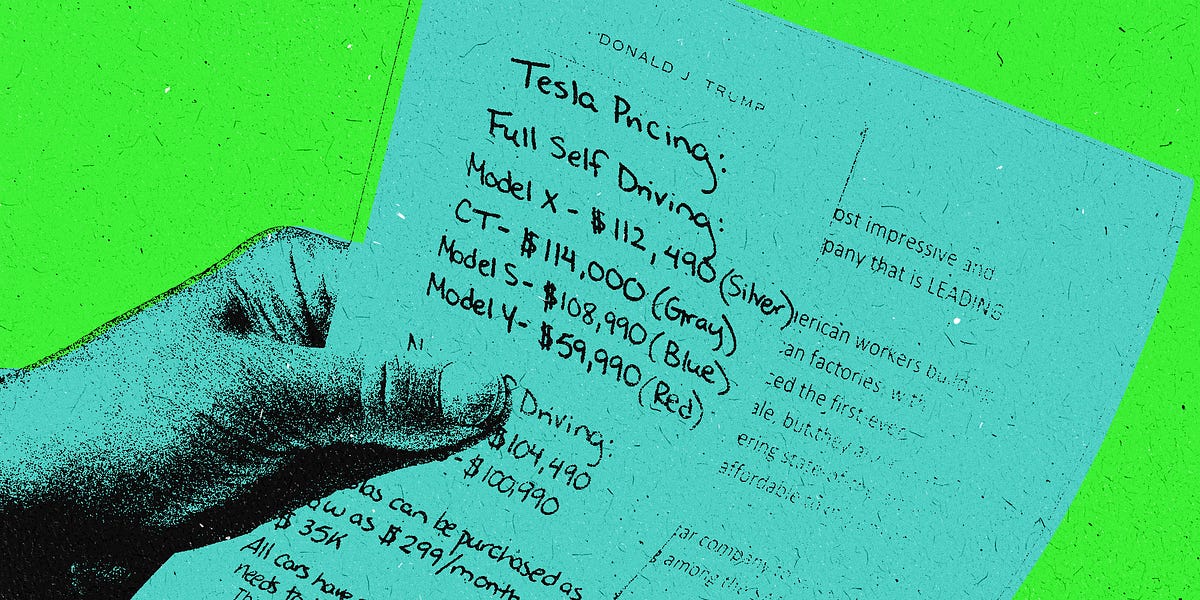 DONALD J. TRUMP
Tesla Pricing:
Full Self Driving:
Model X - $112,490 (Silver)
CT - $114,000 (Gray)
Model S - $108,990 (Blue)
Model Y - $59,990 (Red)
N
f Driving:
$104,490
- $100,990
las can be purchased as
as $299/month
$35K
All cars have
needs to
ost impressive and
pany that is LEADING
erican workers building
an factories, with
ced the first-ever
ale, but they
ering state of the
affordable
ar company
among the